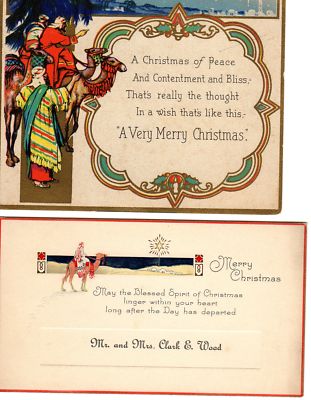 A Christmas of Peace
And Contentment and Bliss,-
That's really the thought
In a wish that's like this,-
"A Very Merry Christmas."
Merry
Christmas
May the Blessed Spirit of Christmas
linger within your heart
long after the Day has departed
Mr. and Mrs. Clark E. Wood